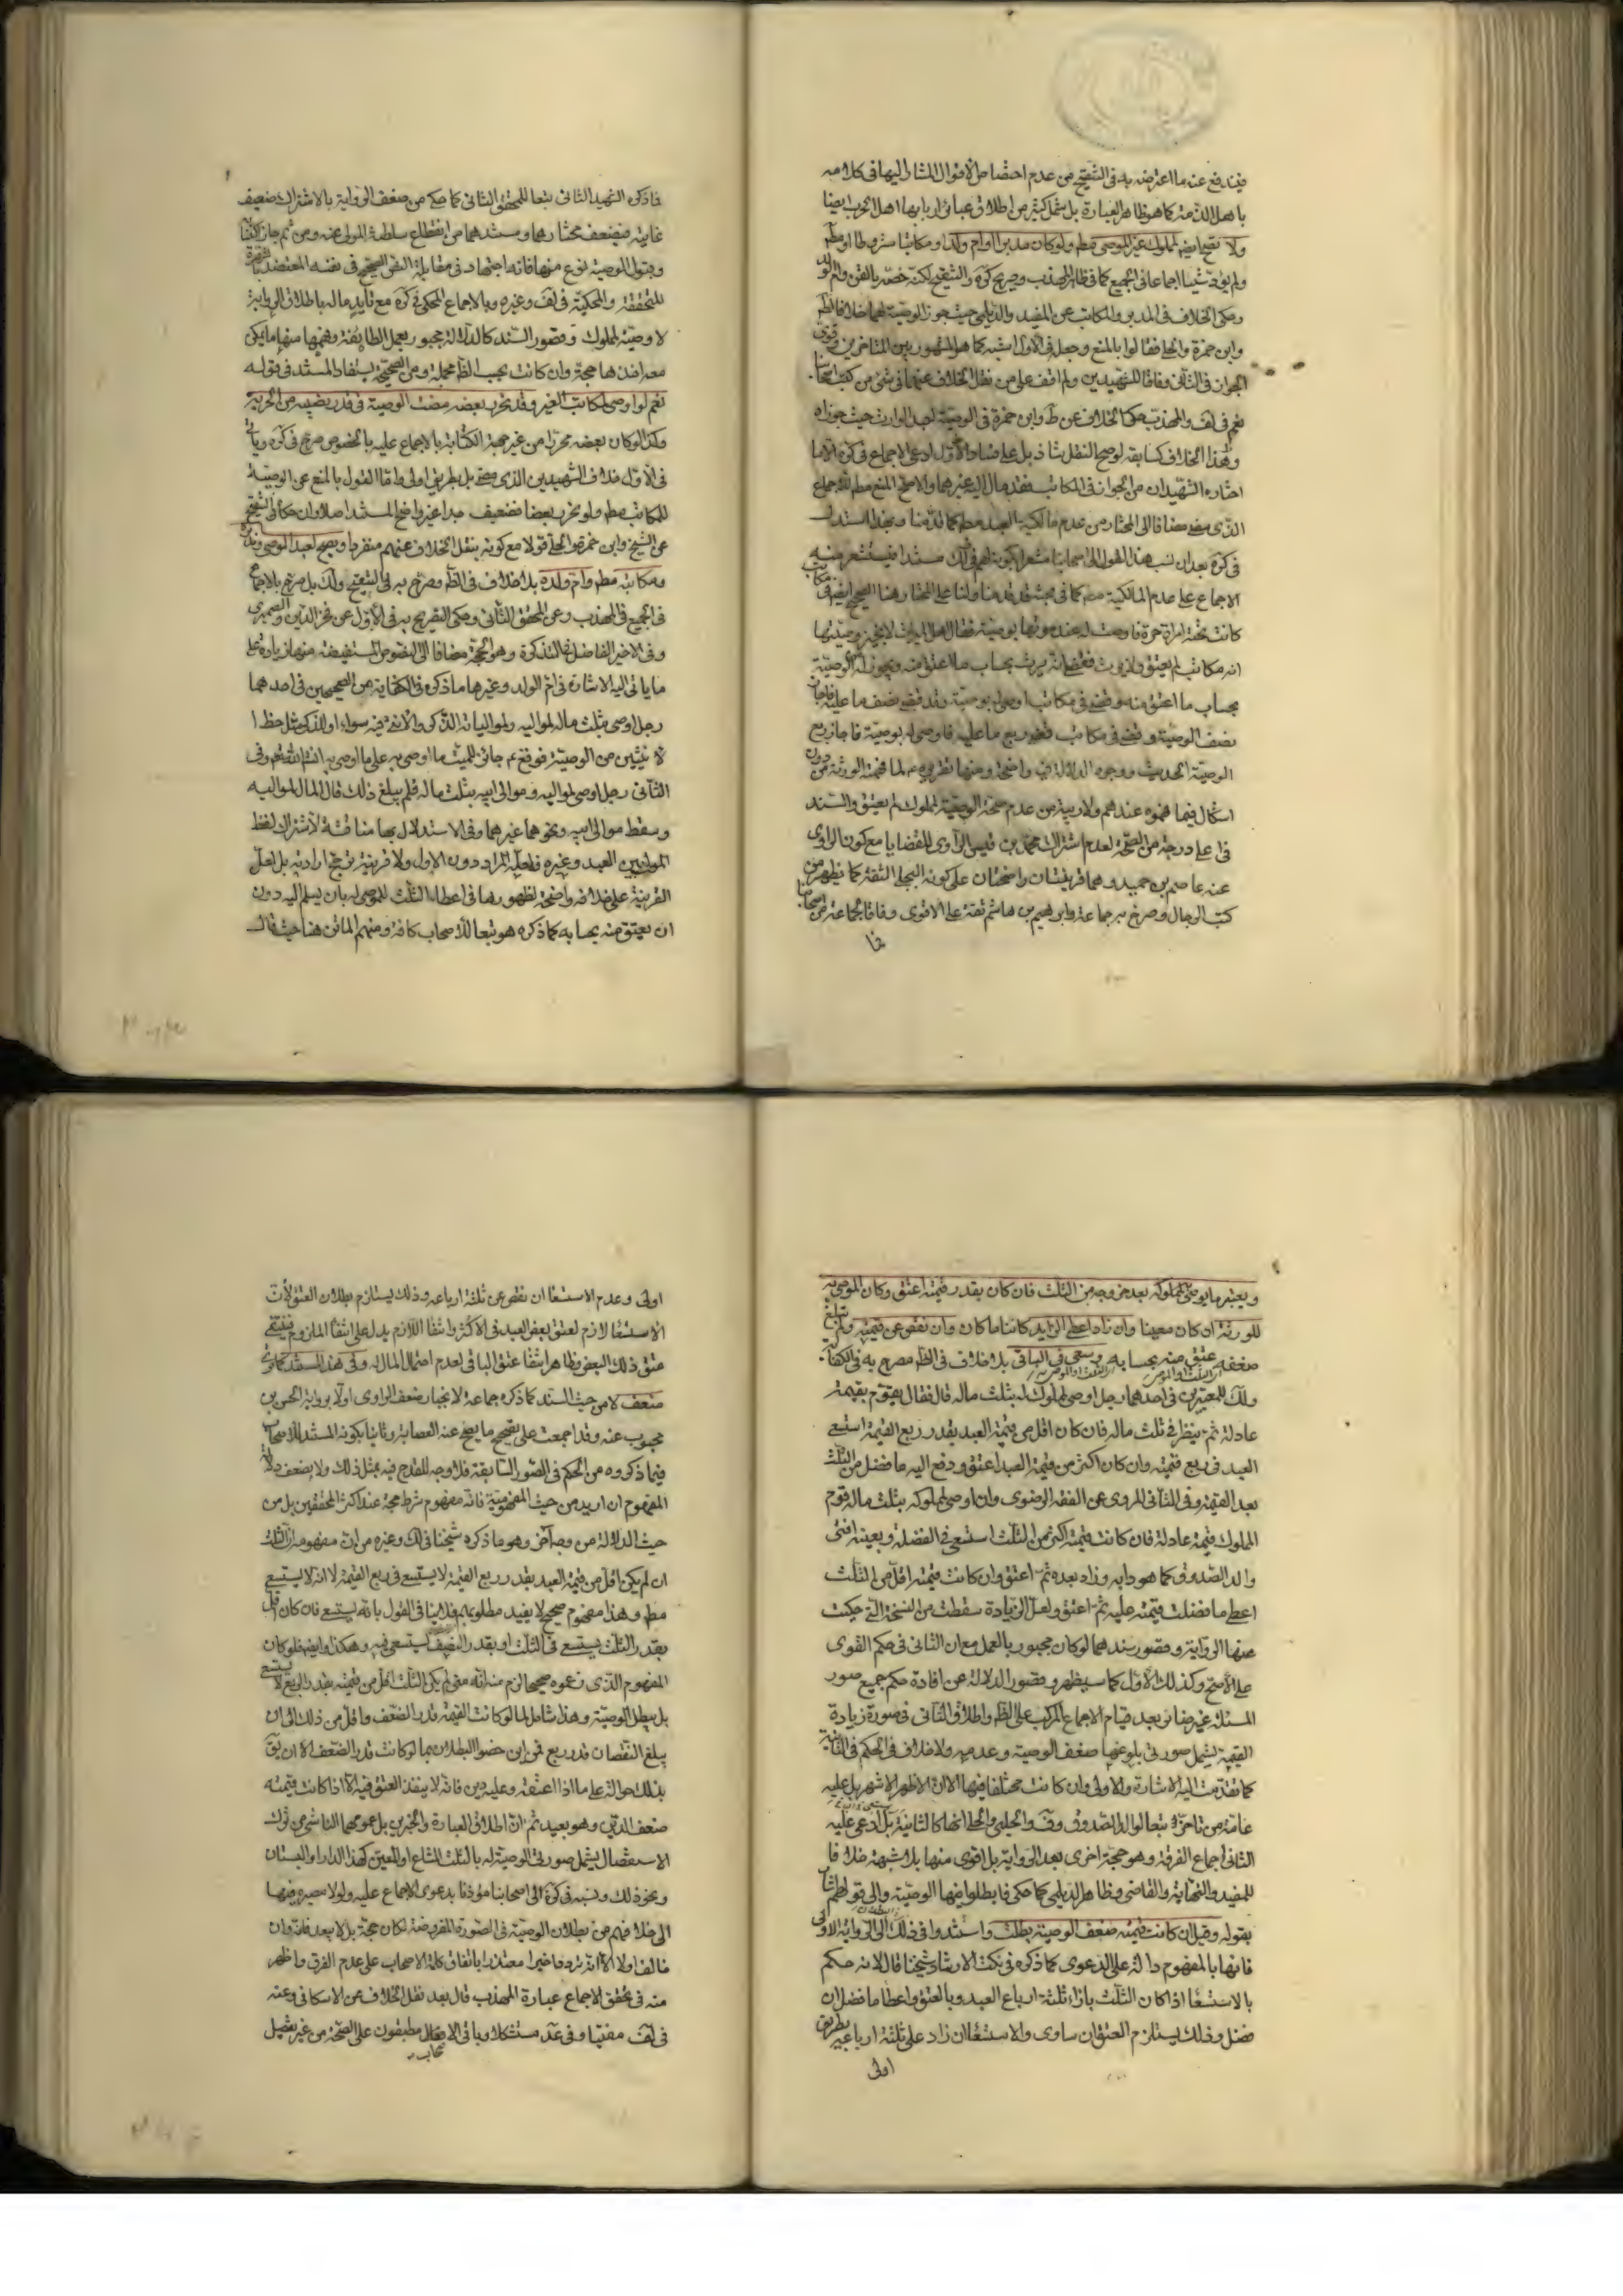 فيندفع عنه ما اعترضه به في التنقيح من عدم اختصاص الأقوال المشار اليها في كلامه
باهل الذمة كما هو ظاهر العبارة بل يشمل كثير من اطلاق عبائر اربابها اهل الحرب ايضا
ولا تصح ايضا لمملوك غير الموصي مطم ولو كان مدبرا او ام ولد او مكاتبا مشروطا او مطم
ولم يؤد شيئا اجماعا في الجميع كما في ظاهر المهذب وصريح كرة والتنقيح لكنه خصه بالقن وام الولد
وحكى الخلاف في المدبر والمكاتب عن المفيد والديلمي حيث جوزا الوصية لهما خلافا للشيخ
وابن حمزة والحلي فقالوا بالمنع وجعله في الاول اشبه كما هو المشهور بين المتاخرين وقوى
الجواز في الثاني وفاقا للشهيدين ولم اقف على من نقل الخلاف عنهما في شئ من كتب اصحابنا
نعم في لف والمهذب حكيا الخلاف عن ط وابن حمزة في الوصية لعبد الوارث حيث جوزاه
وهذا الخلاف كسابقه لو صح النقل شاذ بل على فساد الاول ادعى الاجماع في كرة الا ما
اختاره الشهيدان من الجواز في المكاتب فقد مال اليه غيرهما والاصح المنع مطم للاجماع
الذي مضى مضافا الى المختار من عدم مالكية العبد مطم كما قدمنا وبهذا استدل
في كرة بعد ان نسب هذا القول الى اصحابنا مشعرا بكونه لهم في ذلك مستندا فيستشعر منه
الاجماع على عدم المالكية مطم كما في بحثه قد قدمنا ولنا على المختار هنا الصحيح ايضا في مكاتب
كانت تحته امراة حرة فاوصت له عند موتها بوصية فقال اهل الميراث لا يجوز وصيتها
انه مكاتب لم يعتق ولا يرث فقضى انه يرث بحساب ما اعتق منه ويجوز له من الوصية
بحساب ما اعتق منه وقضى في مكاتب اوصى له بوصية وقد قضى نصف ما عليه فاجاز
نصف الوصية وقضى في مكاتب قضى ربع ما عليه فاوصى له بوصية فاجاز ربع
الوصية الحديث ووجوه الدلالة فيه واضحة ومنها تقريره ع لما فهمه الورثة من دون
اشكال فيما فهموه عندهم ولا ريبة من عدم صحة الوصية لمملوك لم يعتق والسند
في اعلى درجة من الصحة لعدم اشتراك محمد بن قيس الراوي للقضايا مع كون الراوي
عنه عاصم بن حميد وهما قرينتان واضحتان على كونه البجلي الثقة كما يظهر من
كتب الرجال وصرح به جماعة وابرهيم بن هاشم ثقة على الاقوى وفاقا لجماعة من اصحابنا
فما
فما ذكره الشهيد الثاني تبعا للمحقق الثاني كما حكم من ضعف الرواية بالاشتراك ضعيف
غايته فيضعف مختارهما ومستندهما من انقطاع سلطنة المولى عنه ومن ثم جاز اكتسابه
وقبول الوصية نوع منها فانه اجتهاد في مقابلة النص الصحيح في نفسه المعتضد بالشهرة
المحققة والمحكية في لف وغيره وبالاجماع المحكي في كرة مع تايد ما له باطلاق الرواية
لا وصية لمملوك وقصور السند كالدلالة مجبور بعمل الطائفة وفهمها منها ما يكون
معه اخذها حجة وان كانت بحسب الظاهر مجملة ومن الصحيحة يستفاد المستند في قوله
نعم لو اوصى لمكاتب الغير وقد تحرر بعضه مضت الوصية في قدر نصيبه من الحرية
وكذا لو كان بعضه محررا من غير جهة الكتابة بالاجماع عليه بالخصوص صرح في كرة وياتي
في الاول خلاف الشهيدين الذي مضى بل بطريق اولى واما القول بالمنع عن الوصية
للمكاتب مطم ولو تحرر بعضا فضعيف جدا غير واضح المستند اصلا وان حكاه في التنقيح
عن الشيخ وابن حمزة والحلي قولا مع كونه بنقل الخلاف عنهم منفردا ويصح لعبد الموصي ومدبره
ومكاتبه مطم وام ولده بلا خلاف في الظاهر وصرح به في التنقيح ولك بل صرح بالاجماع
في الجميع في المهذب وعن المحقق الثاني وحكى التصريح به في الاول عن فخر الدين والصيمري
وفي الاخير الفاضل في التذكرة وهو الحجة مضافا الى النصوص المستفيضة منها زيادة على
ما ياتي اليه الاشارة في ام الولد وغيرها ما ذكره في الكفاية من الصحيحين في احدهما
رجل اوصى بثلث ماله لمواليه ولمولياته الذكر والانثى فيه سواء او للذكر مثل حظ ا
لانثيين من الوصية فوقع ع جائز للميت ما اوصى به على ما اوصى به انشاء الله تعم وفي
الثاني رجل اوصى لمواليه وموالي ابيه بثلث ماله فلم يبلغ ذلك قال المال لمواليه
وسقط موالي ابيه ونحوهما غيرهما وفي الاستدلال بها مناقشة لاشتراك لفظ
الموالي بين العبد وغيره فلعله المراد دون الاول ولا قرينة ترجح ارادته بل لعل
القرينة على خلافه واضحة لظهورها في اعطاء الثلث للموصى له بان يسلم اليه دون
ان يعتق منه بحسابه كما ذكره هو تبعا للاصحاب كافة ومنهم الماتن هنا حيث قال
ويعتبر ما يوصي لمملوكه بعد خروجه من الثلث فان كان بقدر قيمته اعتق وكان الموصى به
للورثة ان كان معينا وان زاد اعطي الزايد كائنا ما كان وان نقص عن قيمته ولم تبلغ
ضعفه عتق منه بحسابه وسعى في الباقي بلا خلاف في الظاهر مصرح به في الكفاية
ولك للمعتبرين في احدهما رجل اوصى لمملوك له بثلث ماله قال فقال يقوم بقيمة
عادلة ثم ينظر في ثلث ماله فان كان اقل من قيمة العبد بقدر ربع القيمة استسعى
العبد في ربع قيمته وان كان اكثر من قيمة العبد اعتق ودفع اليه ما فضل من الثلث
بعد القيمة وفي الثاني المروي عن الفقه الرضوي وان اوصى لمملوكه بثلث ماله قوم
المملوك قيمة عادلة فان كانت قيمته اكثر من الثلث استسعى في الفضلة وبعينه افتى
والد الصدوق كما هو دابه وزاد بعده ثم اعتق وان كانت قيمته اقل من الثلث
اعطي ما فضلت قيمته عليه ثم اعتق ولعل الزيادة سقطت من النسخة التي حكيت
عنها الرواية وقصور سندهما لو كان مجبور بالعمل مع ان الثاني في حكم القوي
على الاصح وكذلك الاول كما سيظهر وقصور الدلالة عن افادة حكم جميع صور
المسئلة غير ضائر بعد قيام الاجماع المركب على الظاهر واطلاق الثاني في صورة زيادة
القيمة يشمل صورتي بلوغها ضعف الوصية وعدمه ولا خلاف في الحكم في الثانية
كما تقدمت اليه الاشارة والاولى وان كانت مختلفا فيها الا ان الاظهر الاشهر بل عليه
عامة من تاخر تبعا لوالد الصدوق وف والحلبي والحلي انها كالثانية بل ادعى عليه
الثاني اجماع الفرقة وهو حجة اخرى بعد الرواية بل اقوى منها بلا شبهة خلافا
للمفيد والنهاية والقاضي وظاهر الديلمي كما حكي فابطلوا فيها الوصية والى قولهم اشار
بقوله وقيل ان كانت قيمته ضعف الوصية بطلت واستندوا في ذلك الى الرواية الاولى
فانها بالمفهوم دالة على الدعوى كما ذكره في نكت الارشاد وشيخنا قال لانه حكم
بالاستسعاء اذا كان الثلث بازاء ثلثة ارباع العبد وبالعتق واعطاء ما فضل ان
فضل وذلك يستلزم العتق ان ساوى والاستسعاء ان زاد على ثلثة ارباعه بطريق
اولى
اولى وعدم الاستسعاء ان نقص عن ثلثة ارباعه وذلك يستلزم بطلان العتق لان
الاستسعاء لازم لعتق بعض العبد في الاكثر وانتفاء اللازم يدل على انتفاء الملزوم فينتفي
عتق ذلك البعض فظاهر انتفاء عتق الباقي لعدم احتمال المال له وفي هذا المستند كما ترى
ضعف لا من حيث السند كما ذكره جماعة لانجبار ضعف الراوي اولا برواية الحسن بن
محبوب عنه وقد اجمعت على تصحيح ما يصح عنه العصابة وثانيا بكونه المستند للاصحاب
فيما ذكروه من الحكم في الصور السابقة فلا وجه للقدح فيه بمثل ذلك ولا بضعف دلالة
المفهوم ان اريد من حيث المفهومية فانه مفهوم شرط حجة عند اكثر المحققين بل من
حيث الدلالة من وجه آخر وهو ما ذكره شيخنا في لك وغيره من ان مفهومه ان الثلث
ان لم يكن اقل من قيمة العبد بقدر ربع القيمة لا يستسعى في ربع القيمة لا انه لا يستسعى
مطم وهذا مفهوم صحيح لا يفيد مطلوبهم فلا ينافي القول بانه يستسعى فان كان اقل
بقدر الثلث يستسعى في الثلث او بقدر النصف يستسعى فيه وهكذا وايضا فلو كان
المفهوم الذي زعموه صحيحا لزم منه انه متى لم يكن الثلث اقل من قيمته بقدر الربع لا يستسعى
بل يبطل الوصية وهذا شامل لما لو كانت القيمة قدر الضعف واقل من ذلك الى ان
يبلغ النقصان قدر ربع فمن اين خصوا البطلان بما لو كانت قدر الضعف الا ان يق
بذلك حوالة على ما اذا اعتقه وعليه دين فانه لا ينفذ العتق فيه الا اذا كانت قيمته
ضعف الدين وهو بعيد ثم ان اطلاق العبارة والخبرين بل عمومهما الناشئ من ترك
الاستفصال يشمل صورتي الوصية له بالثلث المشاع او المعين كهذا الدار او البستان
ونحو ذلك ونسبه في كرة الى اصحابنا مؤذنا بدعوى الاجماع عليه ولولا مصيره فيها
الى خلافهم من بطلان الوصية في الصورة المفروضة لكان حجة بل لا يبعد فانه وان
خالف اولا الا انه تردد اخيرا معتذرا باتفاق كلمة الاصحاب على عدم الفرق واظهر
منه في تحقق الاجماع عبارة المهذب قال بعد نقل الخلاف عن الاسكافي وعنه
في لف مفتيا وفي عد مستشكلا وباقي الاصحاب مطبقون على الصحة من غير تفصيل